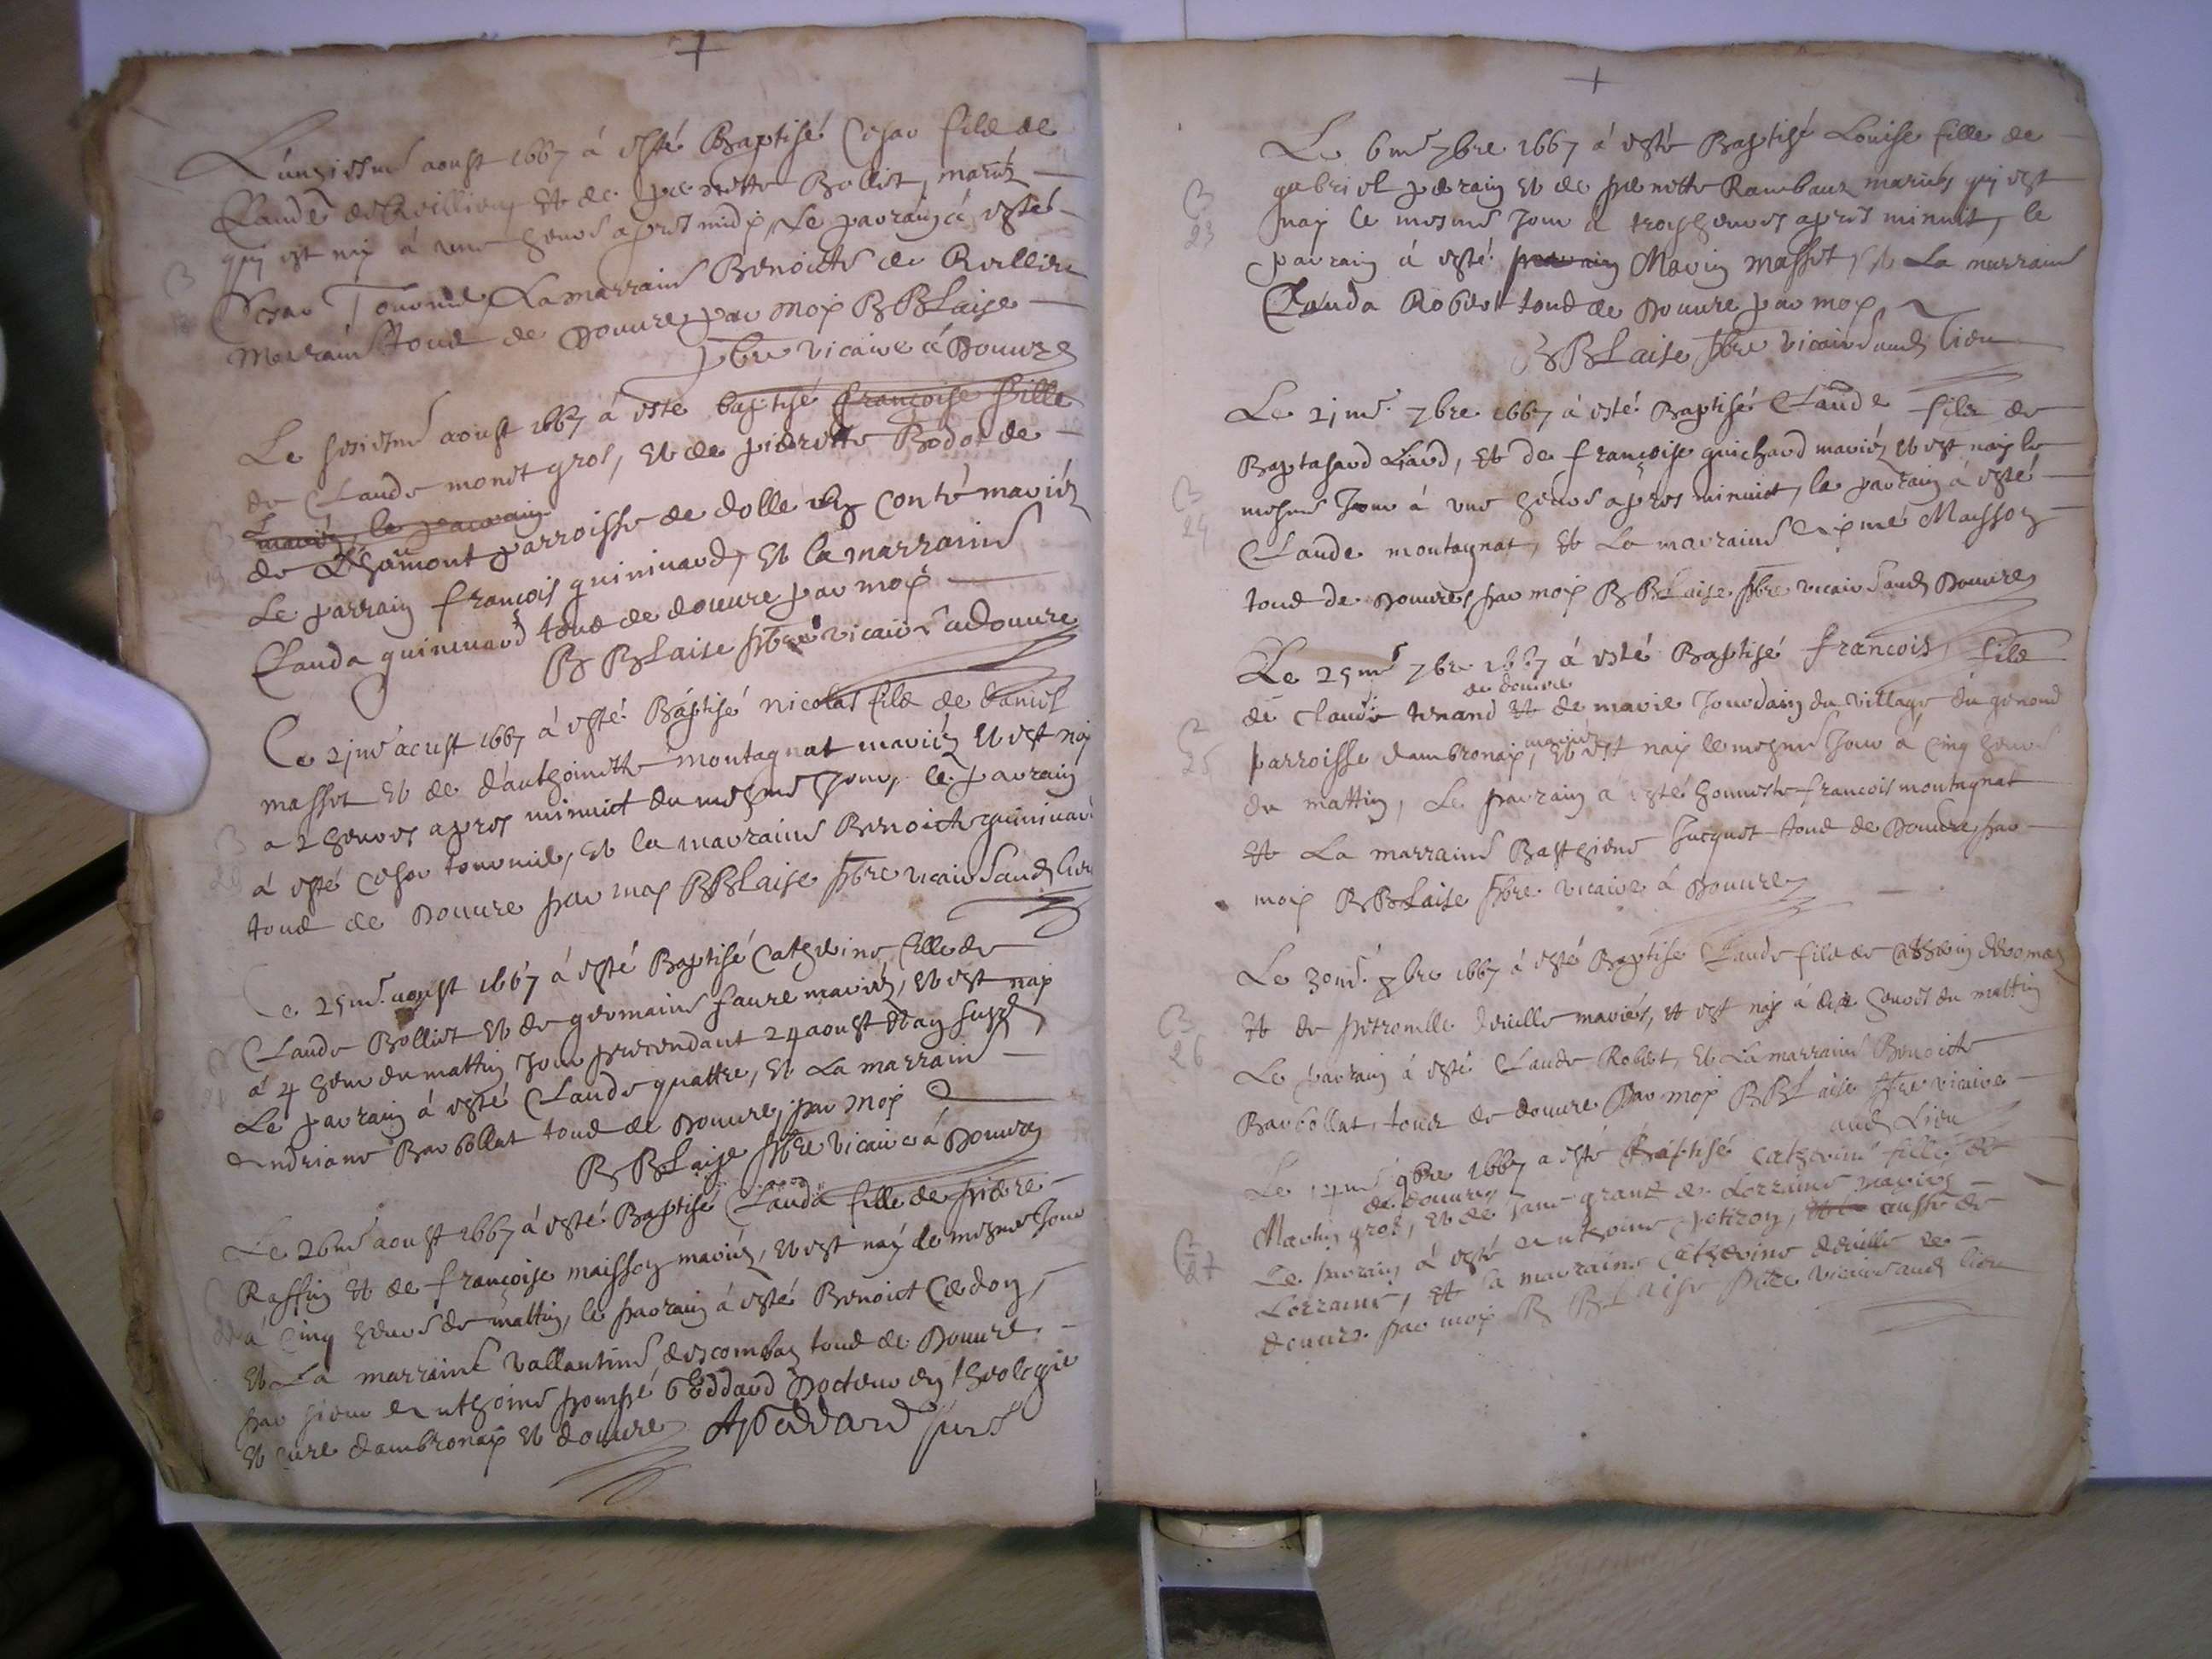 +
L'unziesme aoust 1667 á esté Baptisé Cesar filz de
Claude de Reillieu et de pernette Bolliet, mariéz
qui est naÿ á une heure apres midÿ, Le parrain á esté
Cesar Tournié, La marraine Benoicte de Reillieu
Marraine tous de Douure, par moÿ B BLaise
pbre vicaire á Douure
Le sesiesme aoust 1667 á esté baptisé françoise fille
de Claude monet gros, et de pierrette Bodot de
mariéz, le parrain
de Lhaumont parroisse de dolle en Conté mariéz
Le parrain françois guininard, Et la marraine
Clauda guininard tous de douure par moÿ
B BLaise pbre vicaire a douure
Le 21me aoust 1667 á esté Baptisé nicolas filz de daniel
masset et de d'anthoinette montagnat mariéz et est naÿ
a 2 heures apres minuict du mesme Jour, le parrain
á esté Cesar tournié, et la marraine Benoicte guininard
tous de Douure par moÿ B BLaise pbre vicaire aud lieu
Le 25me aoust 1667 á esté Baptisé Catherine fille de
Claude Bolliet et de germaine faure mariéz, et est naÿ
á 4 heure du mattin Jour precendant 24 aoust et an susd
Le parrain á esté Claude quattre, et La marraine
andriane Barbollat tous de Douure, par moÿ
B BLaise pbre vicaire á Douure
Le 26me aoust 1667 á esté Baptisé Clauda fille de pierre
Raffin et de françoise maisson mariéz, et est naÿ le mesme Jour
á Cinq heures de mattin, le parrain á esté Benoict Cedon,
et La marraine vallantine descombaz tous de Douure
par sieur anthoine pompé boddard Docteur en theologie
et curé d'ambronaÿ et douure
+
Le 6me 7bre 1667 á esté Baptisé Louise fille de
B
23
gabriel perain et de pernette Rambaux mariéz qui est
naÿ le mesme Jour á troys heures apres minuit, le
parrain á esté parrain Marin masset, et La marraine
Clauda Robert tous de Douure par moÿ
B BLaise pbre vicaire aud Lieu
Le 21me 7bre 1667 á esté Baptisé Claude filz de
B
24
Baptasard Liard, et de françoise guichard mariéz et est naÿ le
mesme Jour á une heure apres minuict, le parrain á esté
Claude montagnat, et La marraine Maisson
tous de Douure, par moÿ B BLaise pbre vicaire aud Douure
Le 25me 7bre 1667 á esté Baptisé francois, filz
de douure
de Claude tenand et de marie Jourdain du village du genoud
B
25
mariéz
parroisse dambronaÿ, et est naÿ le mesme Jour á Cinq heures
du mattin, Le parrain á esté honneste francois montagnat
et La marraine Basthiene Jucquet tous de Douure par
moÿ B BLaise pbre vicaire á Douure
Le 30me 7bre 1667 á esté Baptise Claude filz de
B
26
et de petronille deville mariéz, et est naÿ á dix heures du mattin
Le parrain á esté Claude Robert, et La marraine Benoicte
Barbollat, tous de douure Par moÿ B BLaise pbre vicaire
aud Lieu
Le 9bre 1667 a esté Baptisé catherine fille de
de douure
B
27
Martin gros, et de Jane grant de Lorraine mariéz
Le parrain á esté anthoine petizon, et la aussi de
Lorraine, et la marraine Catherine deville de
douure par moÿ B BLaise pbre vicaire aud lieu